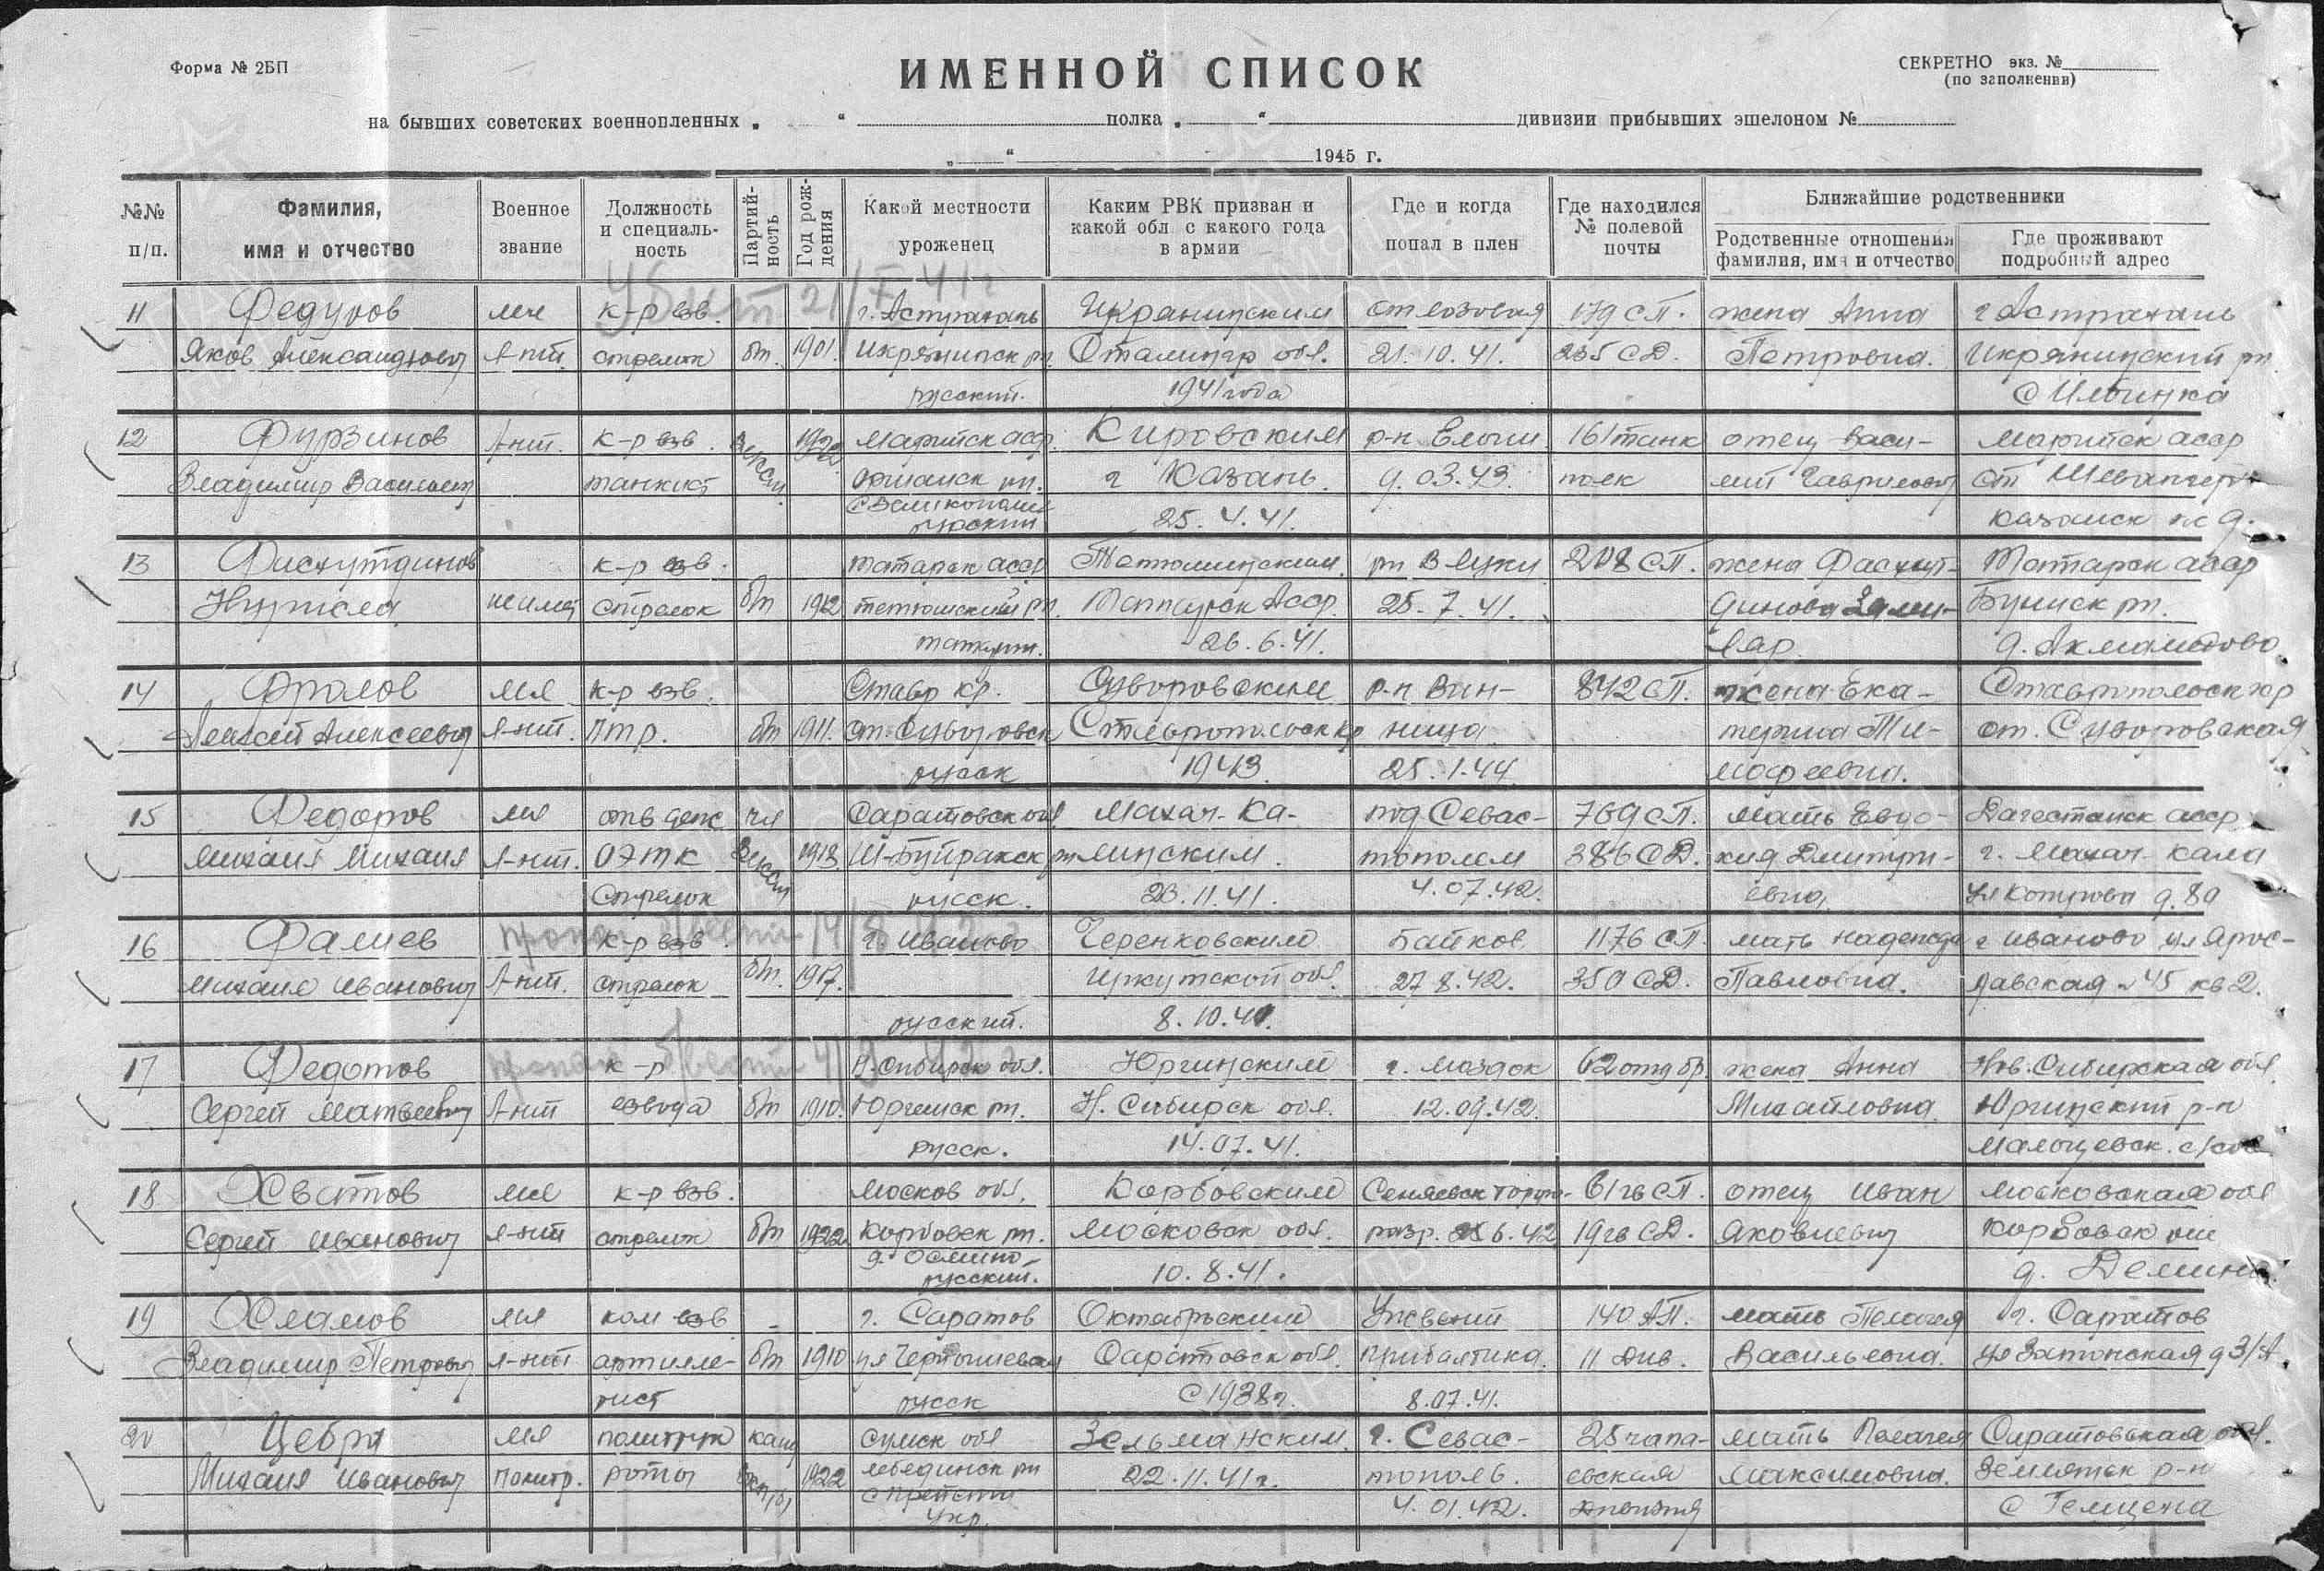 Форма № 2БП
ИМЕННОЙ СПИСОК
СЕКРЕТНО экз. №
(по заполнении)
на бывших советских военнопленных „ “ полка „ “ дивизии прибывших эшелоном №
„ “ 1945 г.
№№ п/п.
Фамилия, имя и отчество
Военное звание
Должность и специаль-ность
Партий-ность
Год рож-дения
Какой местности уроженец
Каким РВК призван и какой обл с какого года в армии
Где и когда попал в плен
Где находился № полевой почты
Ближайшие родственники
Родственные отношения фамилия, имя и отчество
Где проживают подробный адрес
убит 21/X 41г
11 Федуров мл к-р взв. г. Астрахань Икрянинским ст лозовая 179 СП. жена Анна г Астрахань
Яков Александрович л-нт. стрелок бп. 1901. Икрянинск рн. Сталингр обл. 21.10.41. 235 СД. Петровна. Икрянинский рн.
русский. 1941 года с Ильинка
12 Фурзинов л-нт. к-р взв. 1922 Марийск асср. Кировским р-н 161 танк отец Васи- Марийск асср
Владимир Васильевич танкист ВЛКСМ рн. г Казань. 9.03.43. полк лий Гаврилович ст
русский 25.4.41. казанск д.
13 Фисхутдинов к-р взв. татарск асср Тетюшинским рн В Луки 208 СП. жена Фасхут- Татарск асср
не имет стрелок бп 1912 тетюшский рн. Татарск Асср. 25.7.41. динова Буинск рн.
татарин. 26.6.41. д. Ахмаметово
14 Фролов мл к-р взв. Ставр кр. Суворовским р-н Вин- 842 СП. жена Ека- Ставропольск кр
Алексей Алексеевич л-нт. птр. бп 1911. ст. Суворовск Ставропольск кр ница терина Ти- ст. Суворовская
русск 1943. 25.1.44 мофеевна.
15 Федоров мл отв деж чл Саратовск обл Махач-Ка- под Севас- 769 СП. мать Евдо- Дагестанск асср
Михаил Михаил л-нт. ОЭТК ВЛКСМ 1918. рн линским. тополем 386 СД. кия Дмитри- г. Махач-кала
стрелок русск. 23.11.41. 4.07.42. евна.
пропал б/вести 14/8 42 г
16 Фалиев к-р взв. г. Иваново Черенковским Байков 1176 СП. мать Надежда г Иваново ул Ярос-
Михаил Иванович л-нт. стрелок бп. 1917. Иркутской обл. 27.8.42. 350 СД. Павловна. лавская 45 кв 2.
русский. 8.10.41.
пропал б/вести 4/9 42 г
17 Федотов к-р Н.Сибирск обл. Юргинским г. Моздок 62 отд бр. жена Анна Нов.Сибирская обл.
Сергей Матвеевич л-нт взвода бп 1910. Юргинск рн. Н. Сибирск обл. 12.09.42. Михайловна. Юргинский р-н
русск. 14.07.41. с/сов
18 Хватов мл к-р взв. москов обл. Корбовским 61 гв СП. отец Иван московская обл
Сергей Иванович л-нт стрелок бп 1922 Корбовск рн. московск обл. 6.42 19 гв СД. Яковлевич
русский. 10.8.41. д. Демино
19 Хламов мл ком взв. - г. Саратов Октябрьский 140 АП. мать Пелагея г. Саратов
Владимир Петрович л-нт артилле- бп 1910 ул Чернышевск Саратовск обл. прибалтика. 11 див. Васильевна. ул Затонская д 3/А.
рист русск с 1938г. 8.07.41.
20 Цебря мл политрук канд сумск обл Зельманским. г. Севас- 25 чапа- мать Пелагея Саратовская обл.
Михаил Иванович политр. роты ВКП(б) 1922 лебединск рн 22.11.41г. тополь. евская Максимовна. р-н
укр. 4.01.42. с